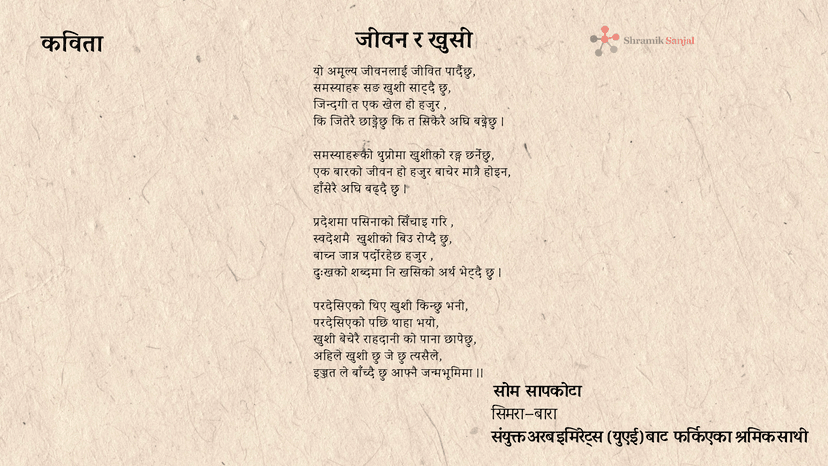 कविता
जीवन र खुसी
Shramik Sanjal
यो अमूल्य जीवनलाई जीवित पार्दैछु,
समस्याहरू सङ खुशी साट्दै छु,
जिन्दगी त एक खेल हो हजुर ,
कि जितेरै छाड्नेछु कि त सिकेरै अघि बढ्नेछु ।
समस्याहरूको थुप्रोमा खुशीको रङ्ग छर्नेछु,
एक बारको जीवन हो हजुर बाचेर मात्रै होइन,
हाँसेरै अघि बढ्दै छु ।
प्रदेशमा पसिनाको सिँचाइ गरि ,
स्वदेशमै खुशीको बिउ रोप्दै छु,
बाच्न जान्न पर्दोरहेछ हजुर ,
दुःखको शब्दमा नि खसिको अर्थ भेट्दै छु ।
परदेसिएको थिए खुशी किन्छु भनी,
परदेसिएको पछि थाहा भयो,
खुशी बेचेरै राहदानी को पाना छापेछु,
अहिले खुशी छु जे छु त्यसैले,
इज्जत ले बाँच्दै छु आफ्नै जन्मभूमिमा ।।
सोम सापकोटा
सिमरा–बारा
संयुक्त अरब इमिरेट्स (युएई) बाट फर्किएका श्रमिक साथी